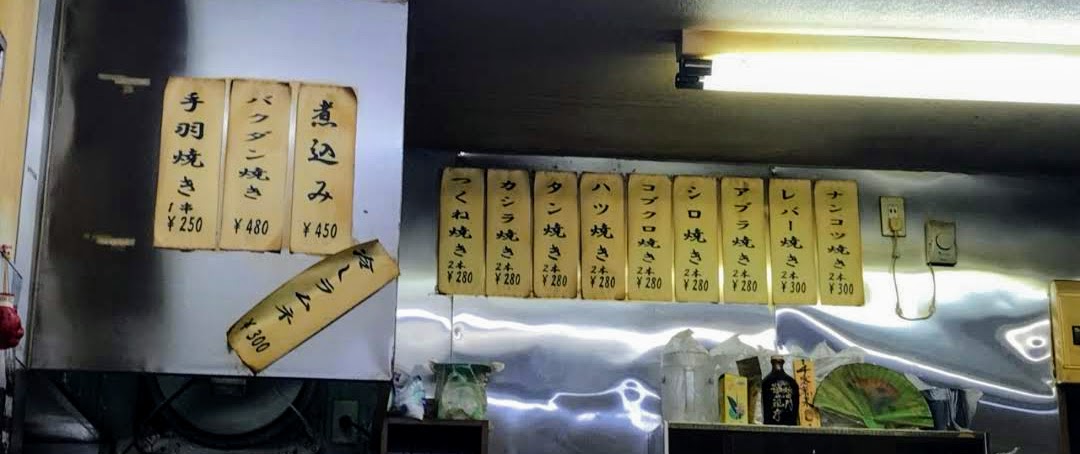 煮込み
¥450
バクダン焼き
¥480
手羽焼き
1本
¥250
冷しラムネ
¥300
ナンコツ焼き
2本
¥300
レバー焼き
2本
¥300
アブラ焼き
2本
¥280
シロ焼き
2本
¥280
コブクロ焼き
2本
¥280
ハツ焼き
2本
¥280
タン焼き
2本
¥280
カシラ焼き
2本
¥280
つくね焼き
2本
¥280